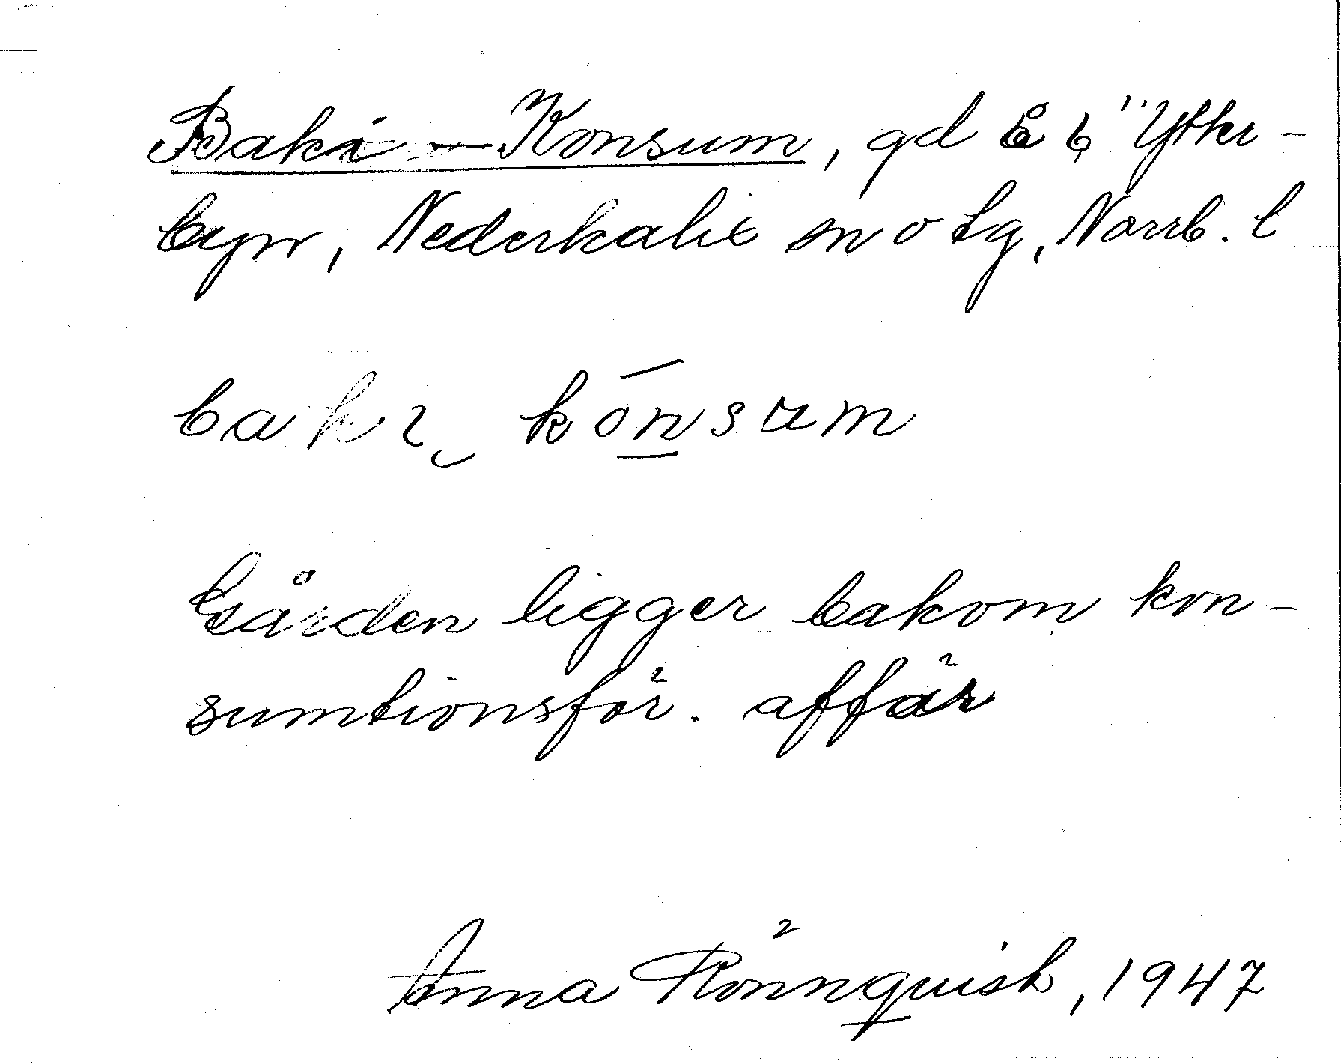 Baki-Konsum, gd E 6¹¹ Ytter-
byn, Nederkalix sn o tg, Norrb. l
baki konsum
Gården ligger bakom kon-
sumtionsför. affär
Anna Rönnquist, 1947